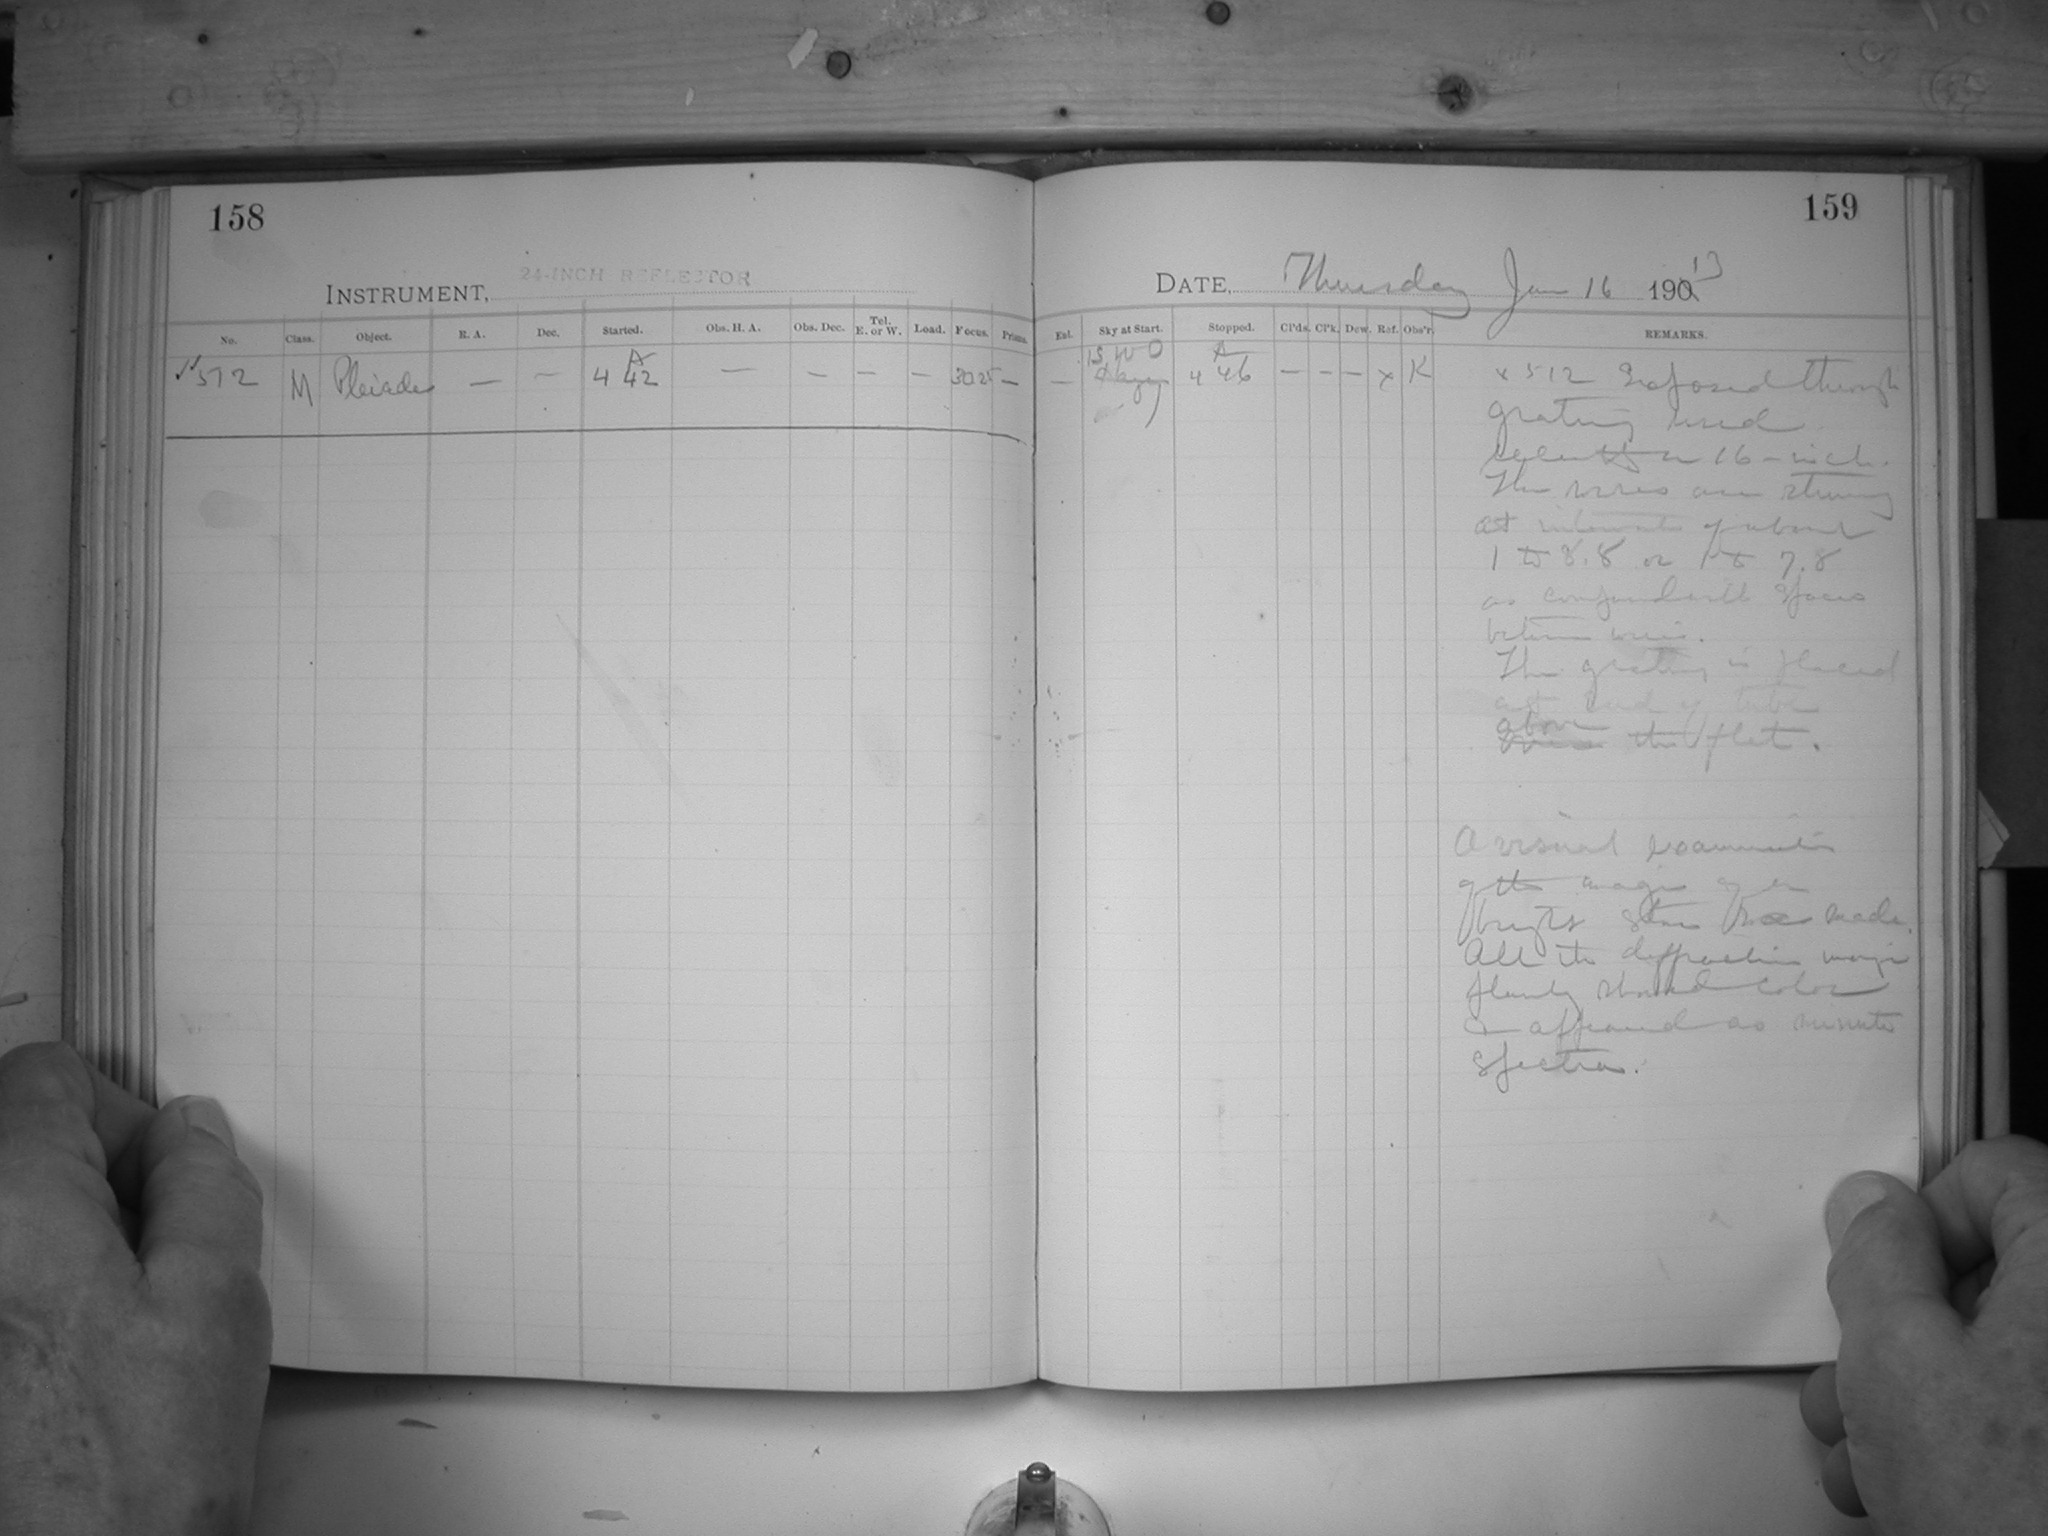 158
159
INSTRUMENT, 24-INCH REFLECTOR
DATE, Thursday Jan 16 1913
No. Class. Object. R. A. Dec. Started. Obs. H. A. Obs. Dec. Tel. E. or W. Load. Focus. Prisms.
Enl. Sky at Start. Stopped. Cl'ds. Cl'k. Dew. Ref. Obs'r. REMARKS.
512 M Pleiades — — 4 42 A — — — — 3025 —
— 4 46 A — — — x K
x 512 Exposed through
grating used
16-inch.
The wires are strung
at intervals of about
1 to 8.8 or 1 to 7.8
as compared with space
between wires.
The grating is placed
at end of tube
above the flat.
A visual examination
of the image of a
bright star was made.
All the diffraction images
plainly showed color
& appeared as minute
spectra.